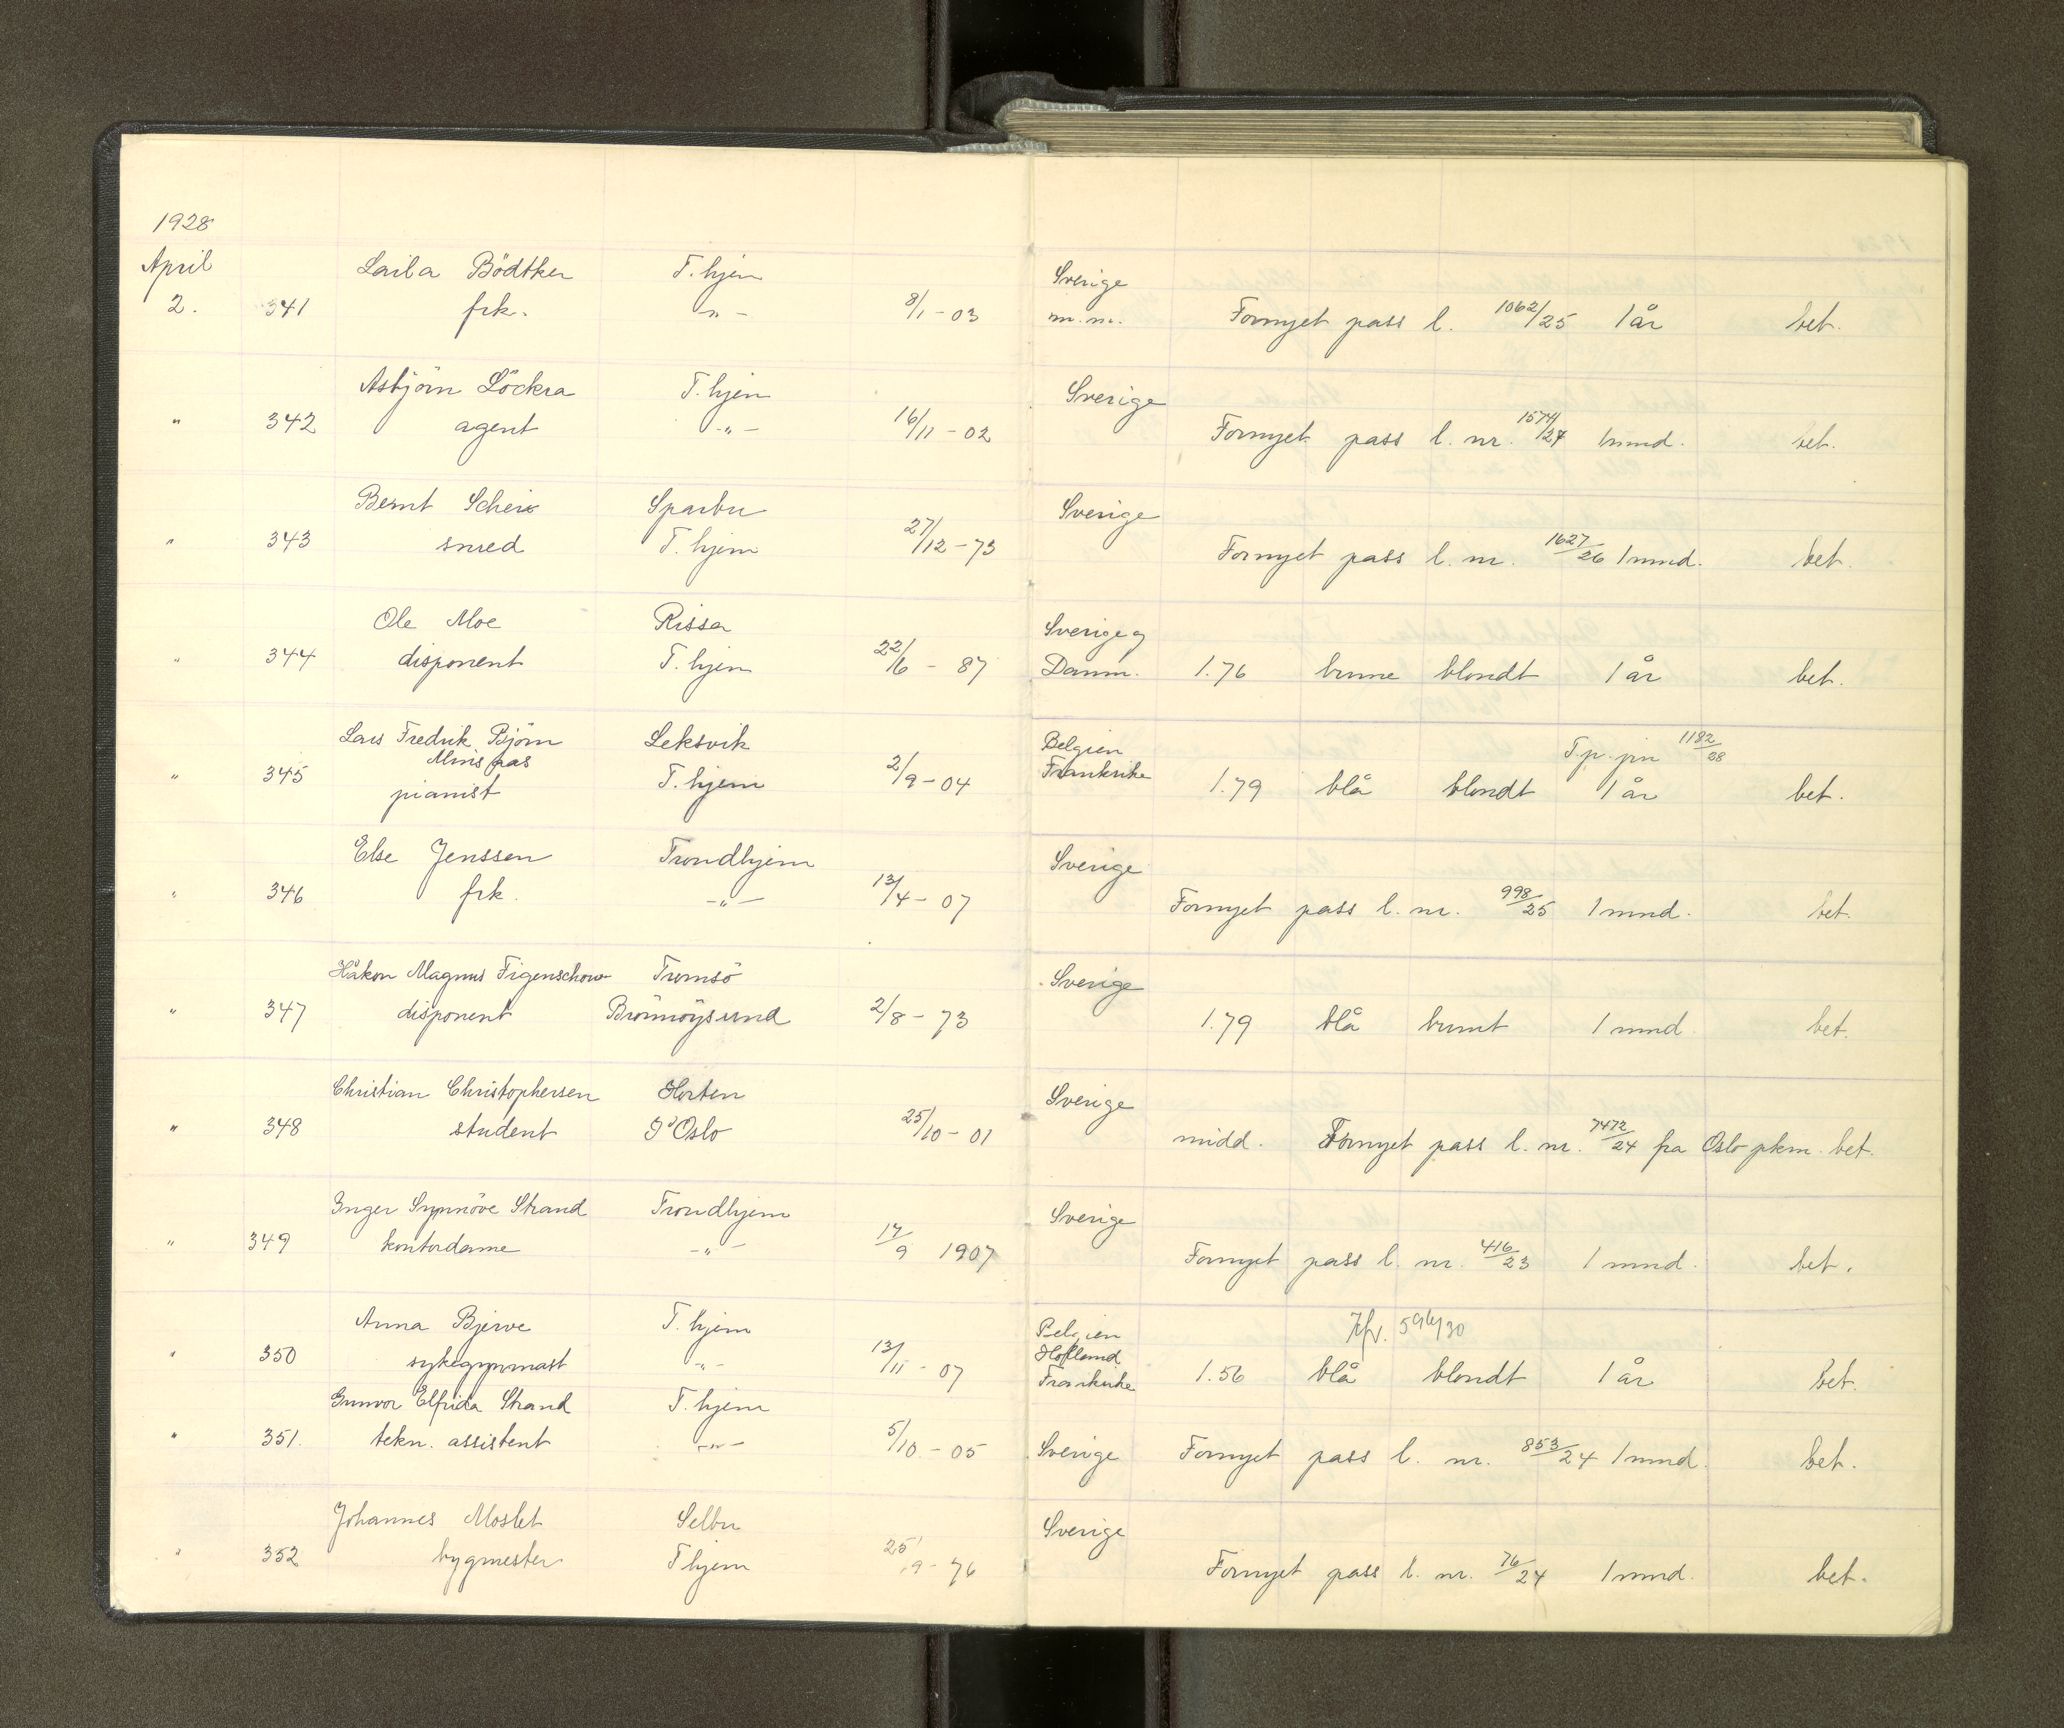 1928
April Laila Bödtker T.hjem Sverige
2. 341 frk. -"- 8/1 - 03 m.m. Fornyet pass l. 1062/25 1 år bet.
Asbjörn Löckra T.hjem Sverige
" 342 agent -"- 16/11 - 02 Fornyet pass l. nr. 1574/27 1 mnd. bet.
Bernt Sparbu Sverige
" 343 smed T.hjem 27/12 - 73 Fornyet pass l. nr. 1627/26 1 mnd. bet.
Ole Moe Rissa Sverige og
" 344 disponent T.hjem 22/6 - 87 Danm. 1.76 brune blondt 1 år bet.
Lars Fredrik Björn Leksvik Belgien T.p. jnr 1182/28
" 345 T.hjem 2/9 - 04 Frankrike 1.79 blå blondt 1 år bet.
pianist
Else Jenssen Trondhjem Sverige
" 346 frk. -"- 13/4 - 07 Fornyet pass l. nr. 998/25 1 mnd. bet.
Håkon Magnus Figenschow Tromsö Sverige
" 347 disponent Brönnöysund 2/8 - 73 1.79 blå brunt 1 mnd. bet.
Christian Christophersen Horten Sverige
" 348 student Oslo 25/10 - 01 midd. Fornyet pass l. nr. 7472/24 fra Oslo pkm. bet.
Inger Synnöve Strand Trondhjem Sverige
" 349 kontordame -"- 17/9 1907 Fornyet pass l. nr. 416/23 1 mnd. bet.
Anna Bjerve T.hjem Belgien
Holland
" 350 sykegymnast -"- 13/11 - 07 Frankrike 1.56 blå blondt 1 år bet.
Gunvor Elfrida Strand T.hjem
" 351. tekn. assistent -"- 5/10 - 05 Sverige Fornyet pass l. nr. 853/24 1 mnd. bet.
Johannes Moslet Selbu Sverige
" 352 bygmester T.hjem 25/9 - 76 Fornyet pass l. nr. 76/24 1 mnd. bet.